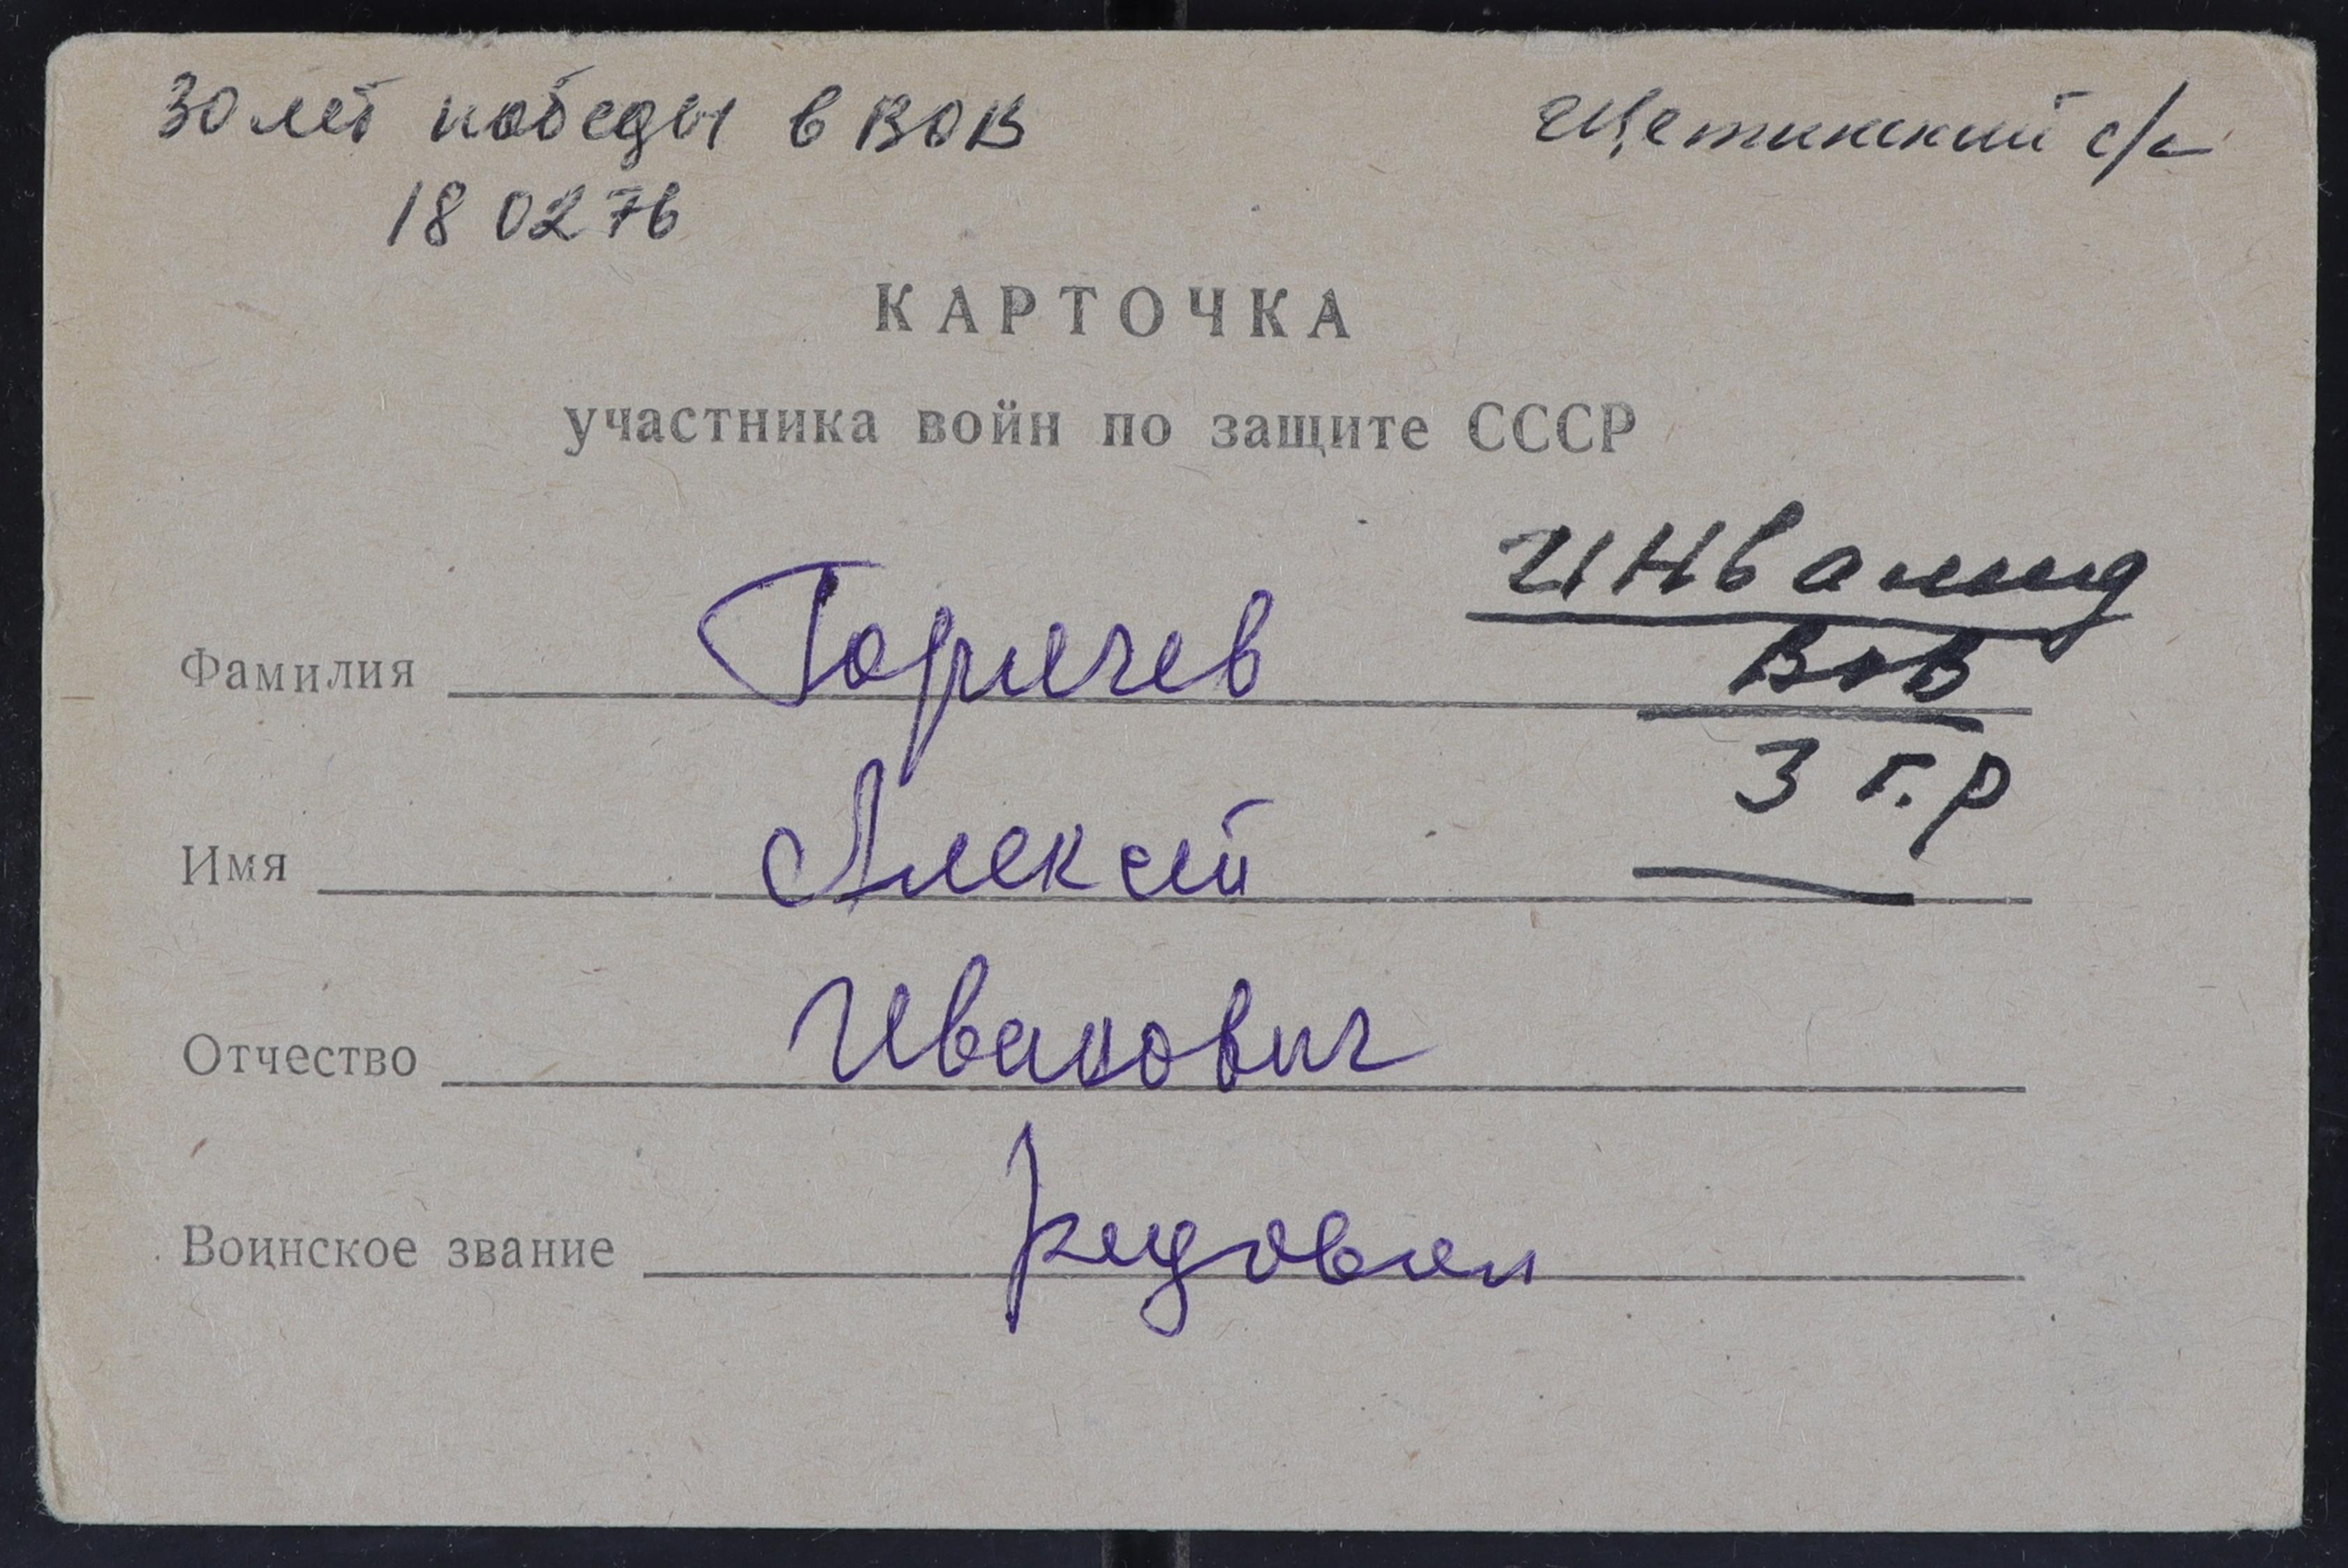 30 лет победы в ВОВ
Щетинский с/с
18 02 76
КАРТОЧКА
участника войн по защите СССР
Инвалид
Фамилия Горячев
ВОВ
3 г.р
Имя Алексей
Отчество Иванович
Воинское звание рядовой